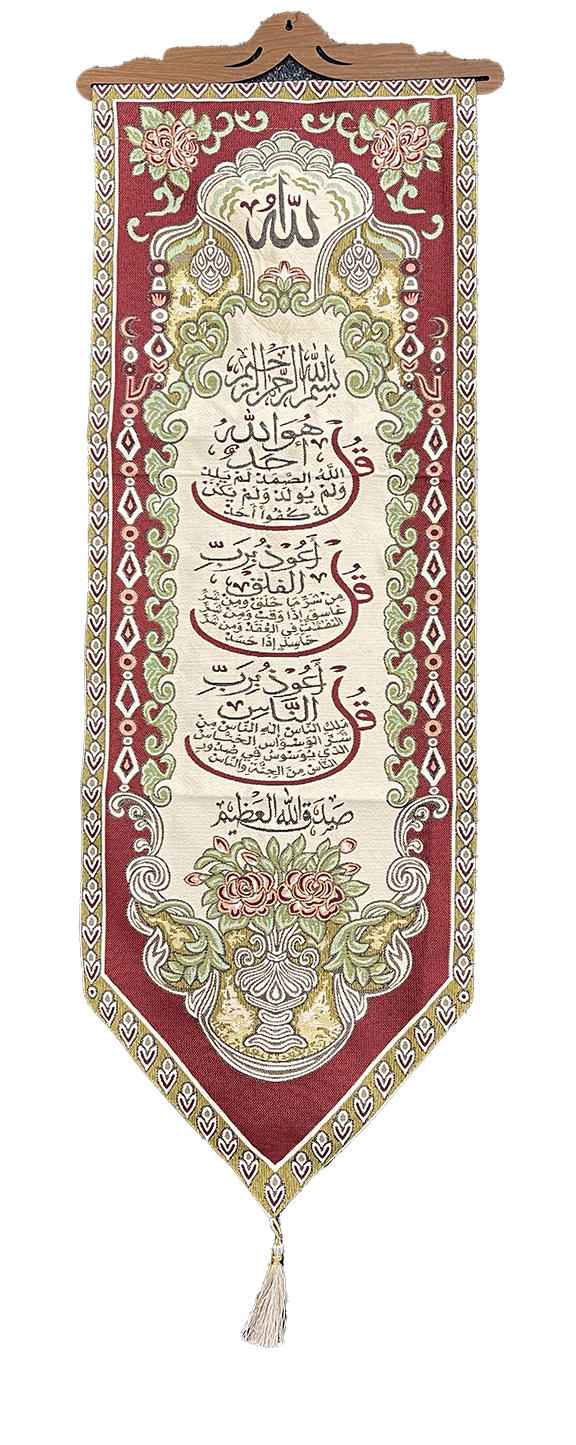 الله
بسم الله الرحمن الرحيم
قُلْ هُوَ الله
أَحَدٌ
اللَّهُ الصَّمَدُ لَمْ يَلِدْ
وَلَمْ يُولَدْ وَلَمْ يَكُنْ
لَهُ كُفُواً أَحَدٌ
قُلْ أَعُوذُ بِرَبِّ
الْفَلَقِ
مِن شَرِّ مَا خَلَقَ وَمِن شَرِّ
غَاسِقٍ إِذَا وَقَبَ وَمِن شَرِّ
النَّفَّٰثَٰتِ فِي الْعُقَدِ وَمِن شَرِّ
حَاسِدٍ إِذَا حَسَدَ
قُلْ أَعُوذُ بِرَبِّ
النَّاسِ
مَلِكِ النَّاسِ إِلَهِ النَّاسِ مِن
شَرِّ الْوَسْوَاسِ الْخَنَّاسِ
الَّذِي يُوَسْوِسُ فِي صُدُورِ
النَّاسِ مِنَ الْجِنَّةِ وَالنَّاسِ
صَدَقَ الله العَظِيم